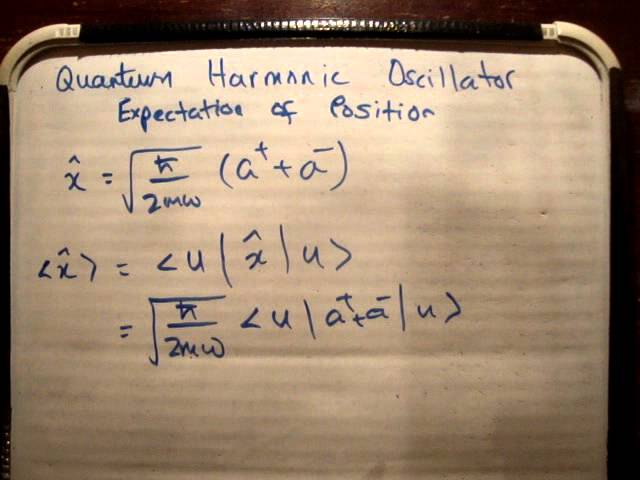 Quantum Harmonic Oscillator
Expectation of Position
x̂ = √(ħ/2mω) (a⁺ + a⁻)
<x̂> = <u|x̂|u>
= √(ħ/2mω) <u|a⁺+a⁻|u>